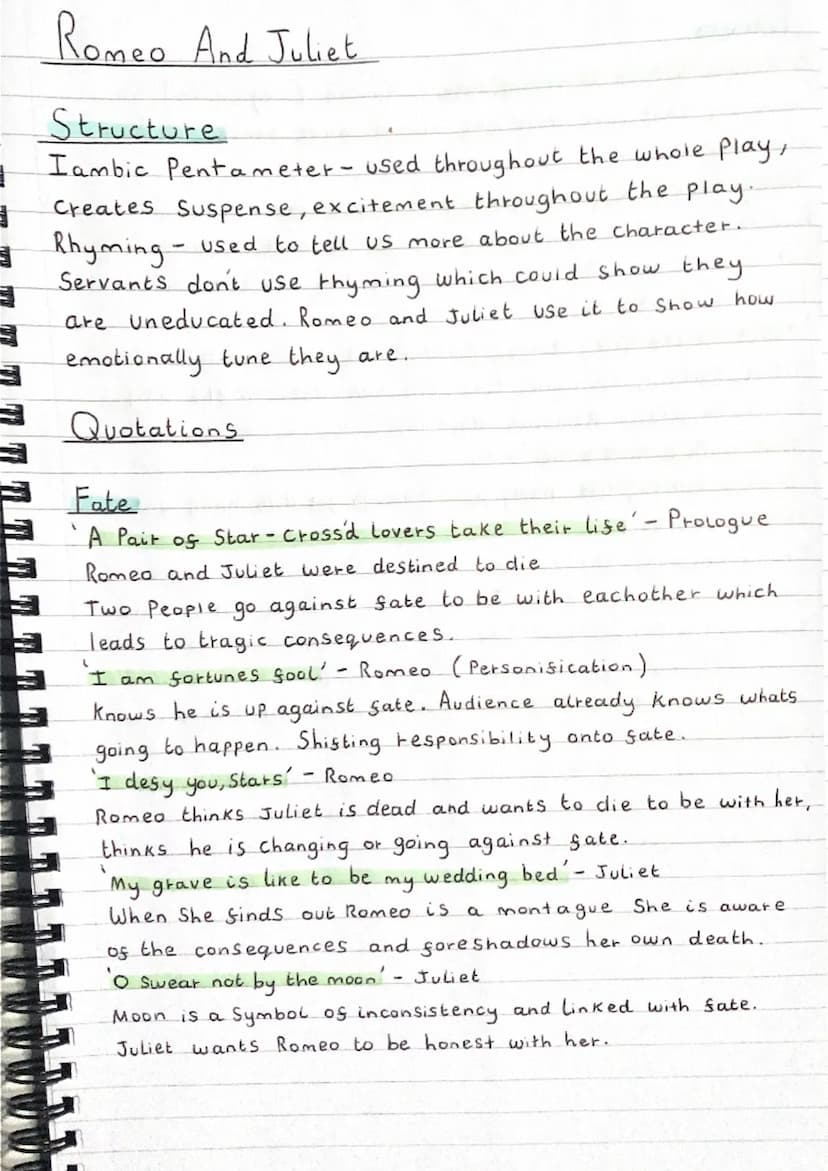 Romeo And Juliet
Structure
Iambic Pentameter - used throughout the whole Play,
Creates suspense, excitement throughout the play.
Rhyming - used to tell us more about the character.
Servants don't use rhyming which could show they
are uneducated. Romeo and Juliet use it to show how
emotionally tune they are.
Quotations
Fate
'A Pair of Star-Cross'd lovers take their life' - Prologue
Romeo and Juliet were destined to die
Two People go against fate to be with eachother which
leads to tragic consequences.
'I am fortunes fool' - Romeo (Personification)
Knows he is up against fate. Audience already knows whats
going to happen. Shifting responsibility onto fate.
'I defy you, Stars' - Romeo
Romeo thinks Juliet is dead and wants to die to be with her,
thinks he is changing or going against fate.
'My grave is like to be my wedding bed' - Juliet
When She finds out Romeo is a montague She is aware
of the consequences and foreshadows her own death.
'O swear not by the moon' - Juliet
Moon is a Symbol of inconsistency and linked with fate.
Juliet wants Romeo to be honest with her.